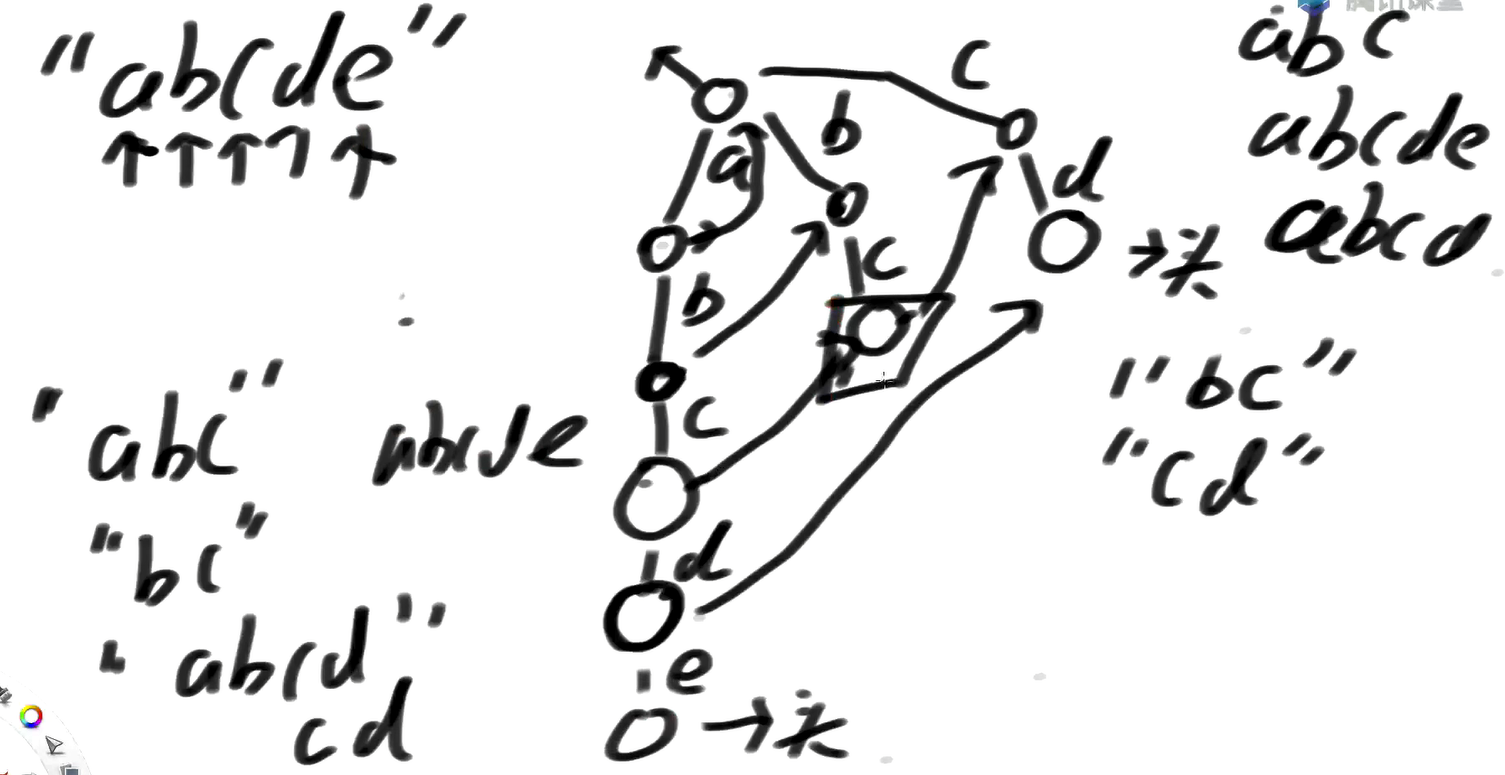 "abcde"
↑↑↑↑↑
"abc" abcde
"bc"
"abcd"
cd
c
b
a
d
c
b
c
d
e
→头
→头
abc
abcde
abcd
"bc"
"cd"